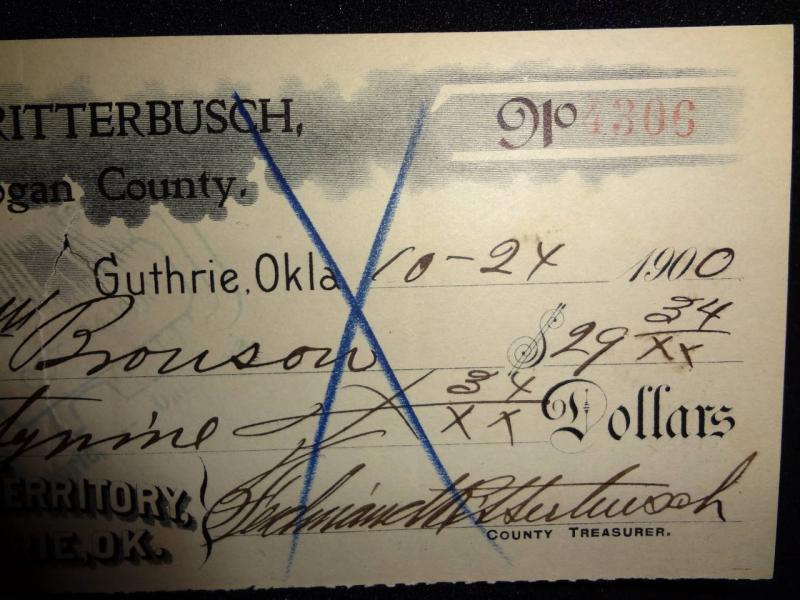 RITTERBUSCH,
No 4306
ogan County.
Guthrie, Okla 10-24 1900
Bronson $29 34/xx
tynine 34/xx Dollars
ERRITORY,
RIE, OK.
Ferdinand Ritterbusch
COUNTY TREASURER.